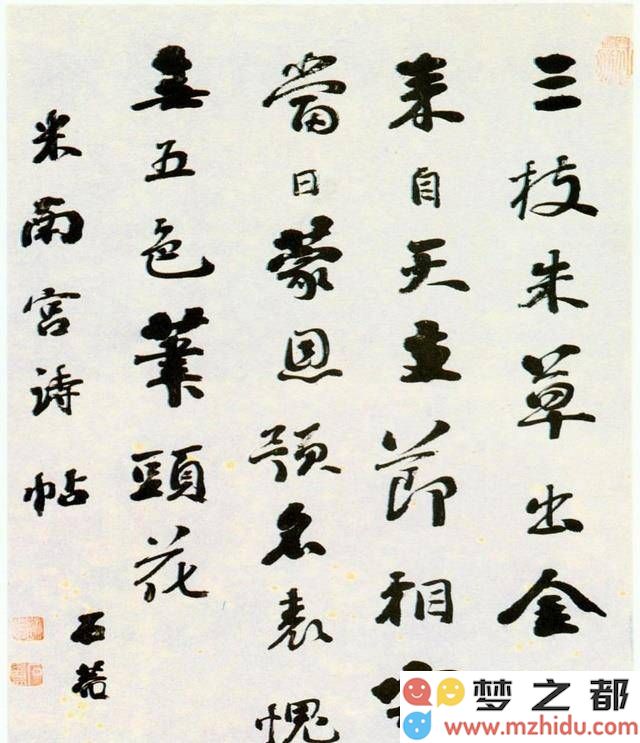 三枝朱草出金
来自天支節相
當日蒙恩預名表愧
無五色筆頭花
米南宮詩帖
石菴
梦之都
www.mzhidu.com